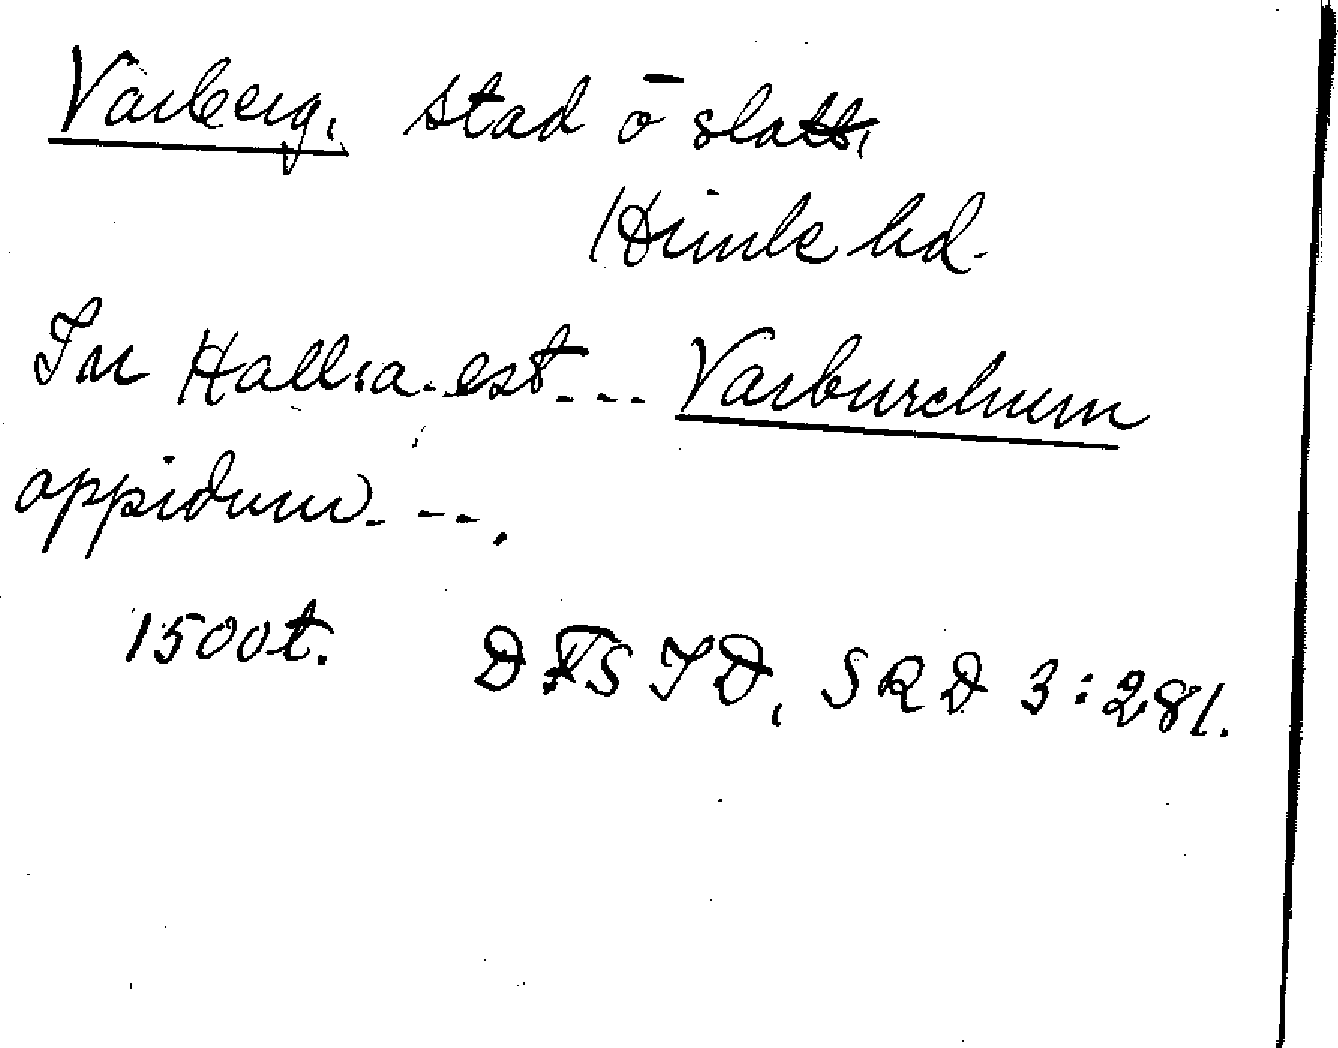 Varberg, stad o slott,
Himle hd.
In Hallia est --- Varburchum
oppidum ---.
1500t. DFSTD, SRD 3:281.